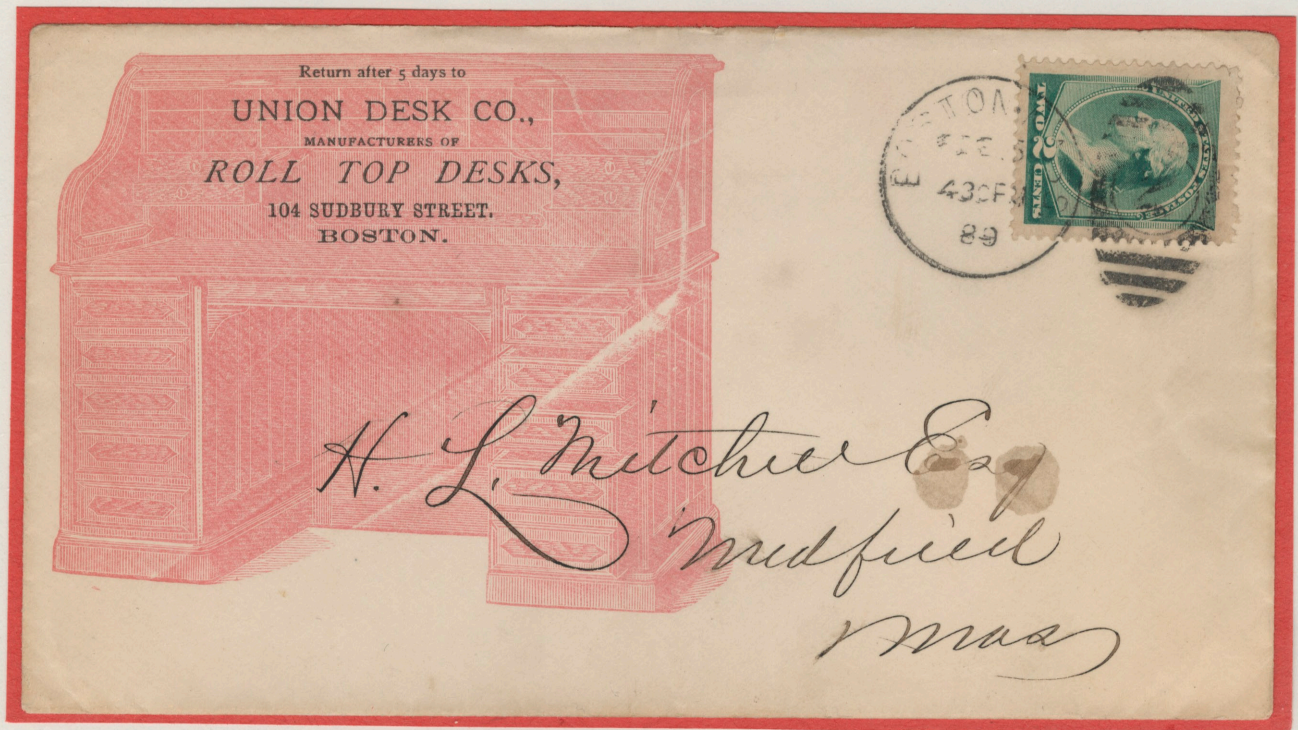 Return after 5 days to
UNION DESK CO.,
MANUFACTURERS OF
ROLL TOP DESKS,
104 SUDBURY STREET.
BOSTON.
BOSTON
430PM
89
TWO 2 CENTS
UNITED STATES POSTAGE
H. L. Mitchell Esq
Medfield
Mass